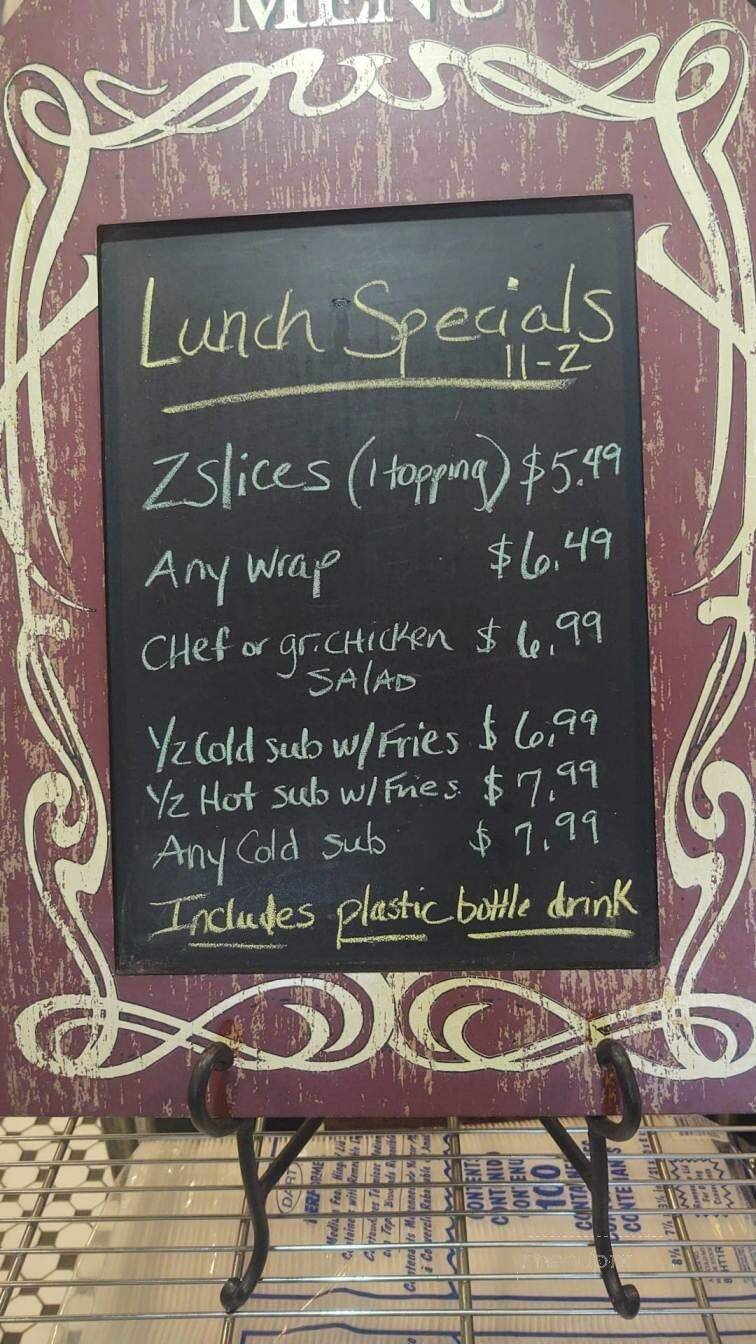 MENU
Lunch Specials
11-2
2 slices (1 topping) $5.49
Any wrap $6.49
CHef or gr. CHicKen $6.99
SAlAD
1/2 Cold sub w/Fries $6.99
1/2 Hot sub w/Fries $7.99
Any Cold sub $7.99
Includes plastic bottle drink
DART
PERFORMER
CONTENT:
CONTENU
100